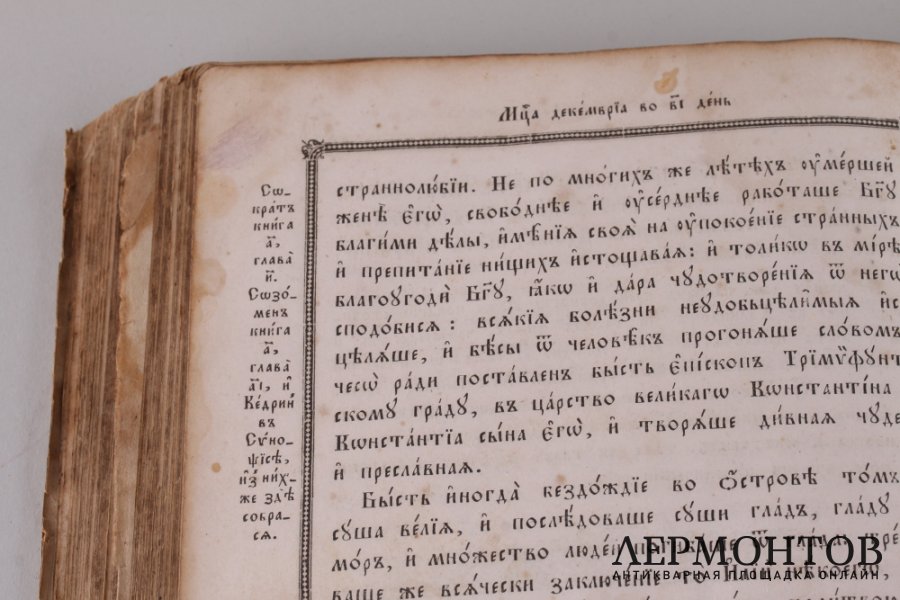 Мц҃а деке́мврїа во в҃і де́нь
Сѡ-
кра́тъ
кни́га
а҃,
глава̀
и҃.
Сѡзо́-
менъ
кни́га
а҃,
глава̀
а҃і, и҆
Ке́дрин
въ
Сѵно-
ѱїсѣ,
и҆з̾ ни́х-
же здѣ̀
собра-
сѧ.
страннолю́бїи. Не по мно́гихъ же лѣ́тѣхъ ᲂу҆ме́ршей
женѣ̀ є҆гѡ̀, свобо́днѣе и҆ ᲂу҆се́рднѣе рабо́таше Бг҃ꙋ
благи́ми дѣ́лы, и҆мѣ̑нїѧ своѧ̑ на ᲂу҆покое́нїе стра́нныхъ
и҆ препита́нїе ни́щихъ и҆стощава́ѧ: и҆ толи́кѡ въ мі́рѣ
благоугодѝ Бг҃ꙋ, ꙗ҆́кѡ и҆ да́ра чꙋдотворе́нїѧ ѿ негѡ̀
сподо́бисѧ: всѧ̑кїѧ болѣ̑зни неꙋдобьцѣли̑мыѧ и҆с
цѣлѧ́ше, и҆ бѣ́сы ѿ человѣ̑къ прогонѧ́ше сло́вомъ
чесѡ̀ ра́ди поста́вленъ бы́сть є҆пі́скопъ Трїмѵфꙋнт
скомꙋ гра́дꙋ, въ ца́рство вели́кагѡ Кѡнстанті́на
Кѡнста́нтїа сы́на є҆гѡ̀, и҆ творѧ́ше ди̑внаѧ чꙋде
и҆ пресла̑внаѧ.
Бы́сть и҆ногда̀ бездо́ждїе во ѻ҆́стровѣ то́мъ
сꙋша ве́лїѧ, и҆ послѣ́доваше сꙋши гла́дъ, гла́дꙋ
мо́ръ, и҆ мно́жество люде́й
ваше же всѧ́чески заключе́нно
ЛЕРМОНТОВ
АНТИКВАРНАЯ ПЛОЩАДКА ОНЛАЙН